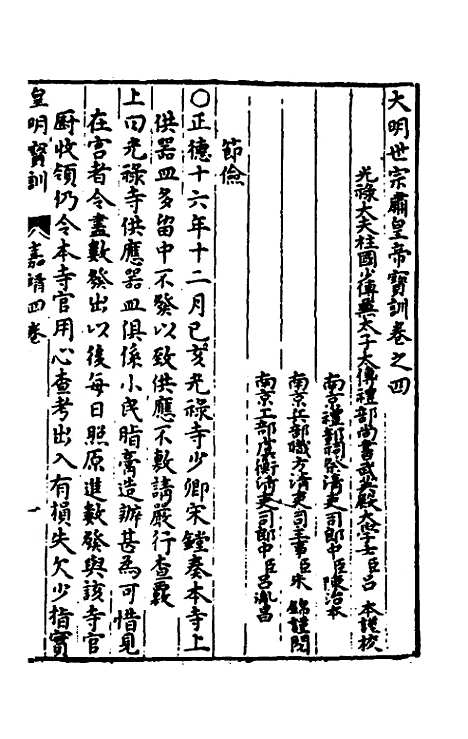 大明世宗肅皇帝寶訓卷之四
光祿大夫柱國少傅兼太子太傅禮部尚書武英殿大學士臣呂 本謹校
南京禮部祠祭清吏司郎中臣陳治本
南京兵部職方清吏司主事臣朱 錦謹閱
南京工部虞衡清吏司郎中臣呂胤昌
節儉
○正德十六年十二月己亥光祿寺少卿宋鏜奏本寺上
供器皿多留中不發以致供應不敷請嚴行查覈
上曰光祿寺供應器皿俱係小民脂膏造辦甚為可惜見
在宮者令盡數發出以後每日照原進數發與該寺官
廚收領仍令本寺官用心查考出入有損失欠少指實
皇明寶訓 嘉靖四卷 一